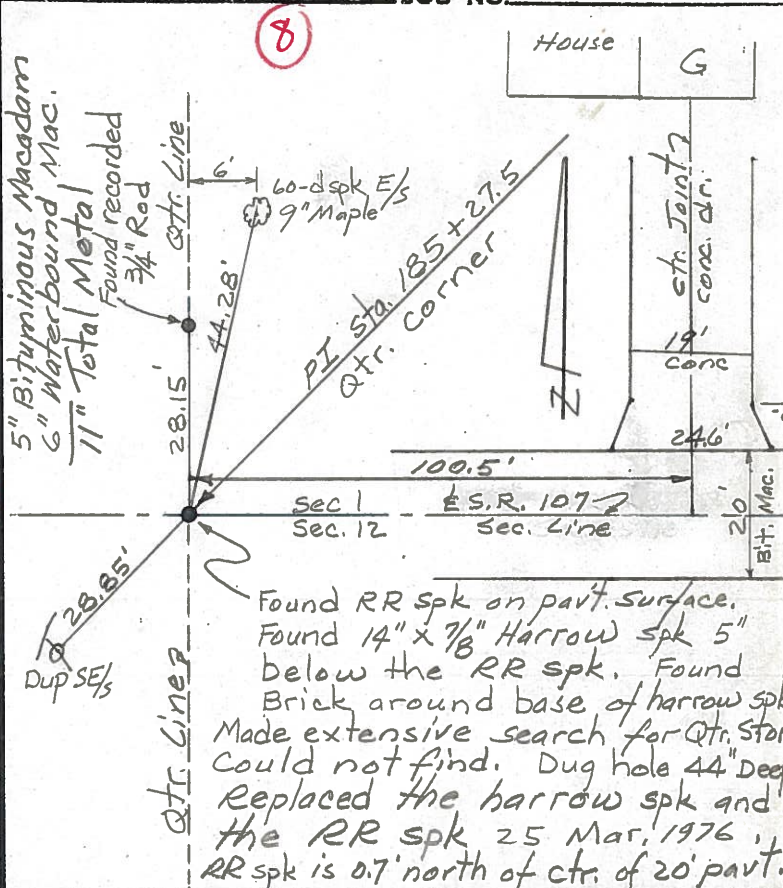 JOB NO.
8
House
G
5" Bituminous Macadam
6" Waterbound Mac.
11" Total Metal
Found recorded
3/4" Rod
Qtr. Line
6'
60-d spk E/s
9" Maple
44.28'
28.15'
PI Sta. 185+27.5
Qtr. Corner
N
ctr. Joint
conc. dr.
19'
conc
24.6'
100.5'
Sec 1
℄ S.R. 107
Sec. 12
Sec. Line
20'
Bit. Mac.
28.85'
Dup SE/s
Qtr. Line
Found RR spk on pavt. surface.
Found 14" x 7/8" Harrow spk 5"
below the RR spk. Found
Brick around base of harrow spk
Made extensive search for Qtr. Sto
Could not find. Dug hole 44" Dee
Replaced the harrow spk and
the RR spk 25 Mar. 1976.
RR spk is 0.7' north of ctr. of 20' pavt.